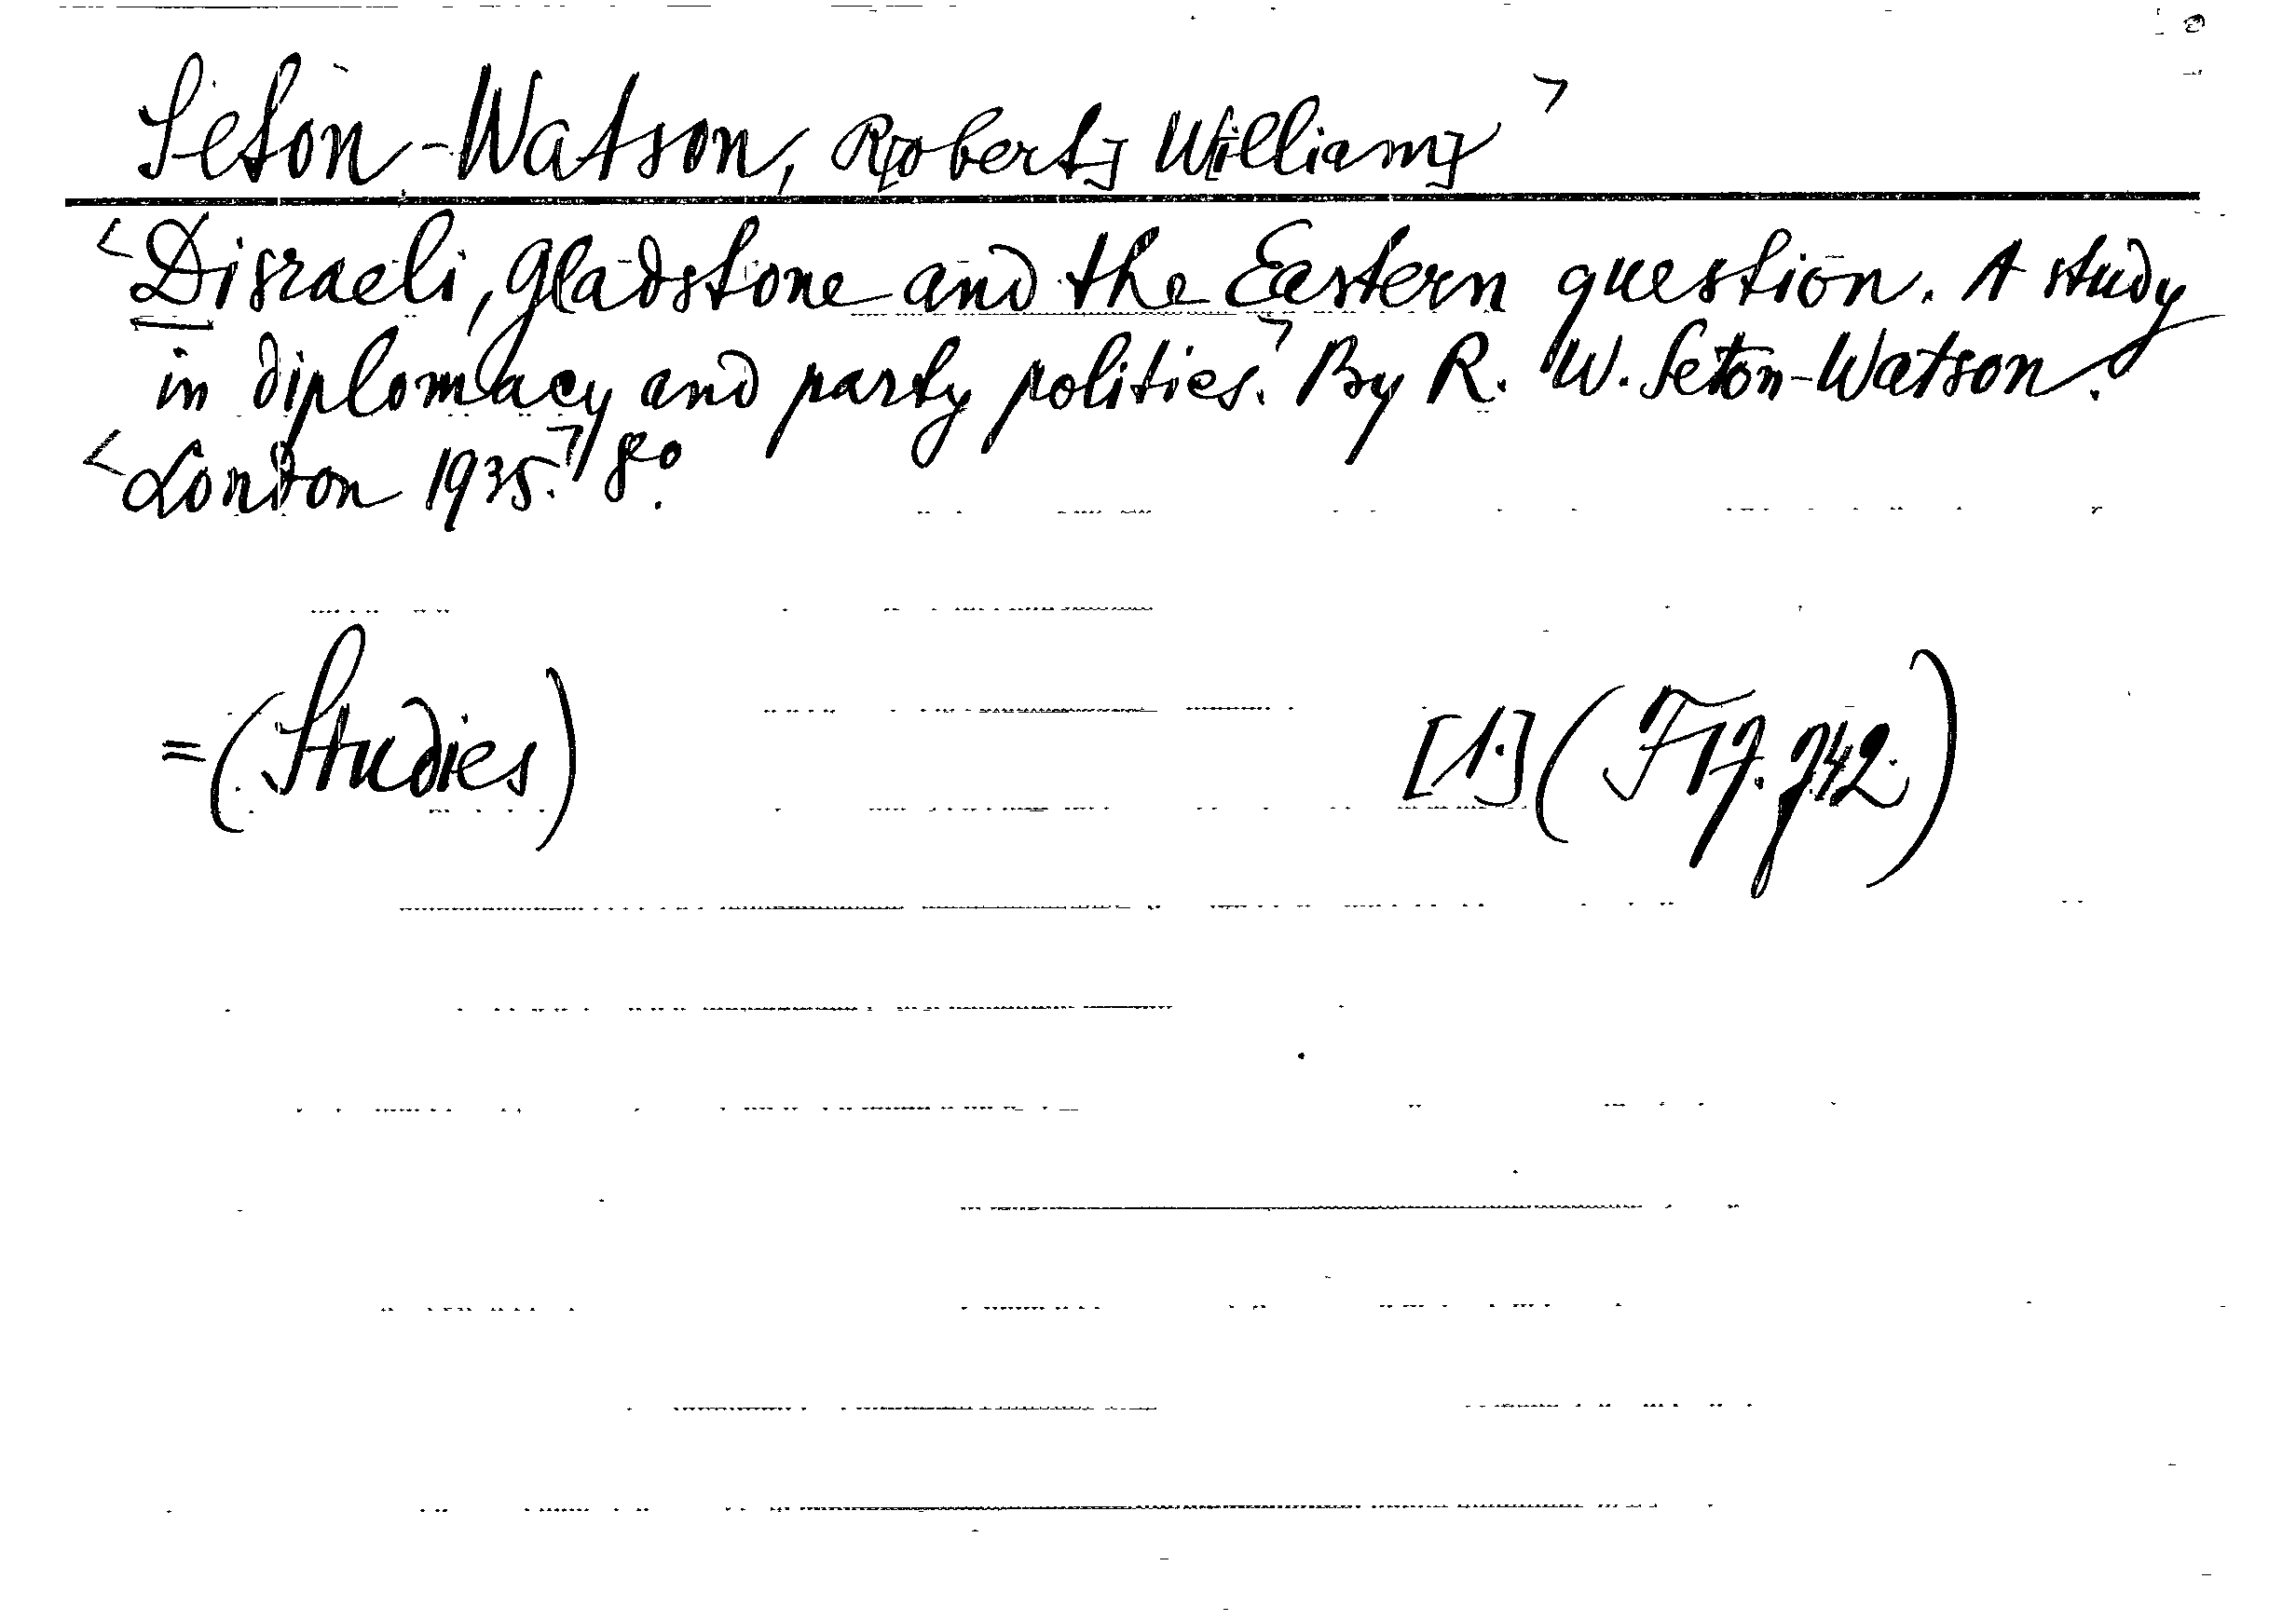 Seton-Watson, R[obert] W[illiam]>
<Disraeli, Gladstone and the Eastern question. A study
in diplomacy and party politics.> By R. W. Seton-Watson.
<London 1935.> 8o.
=(Studies)
[1.]